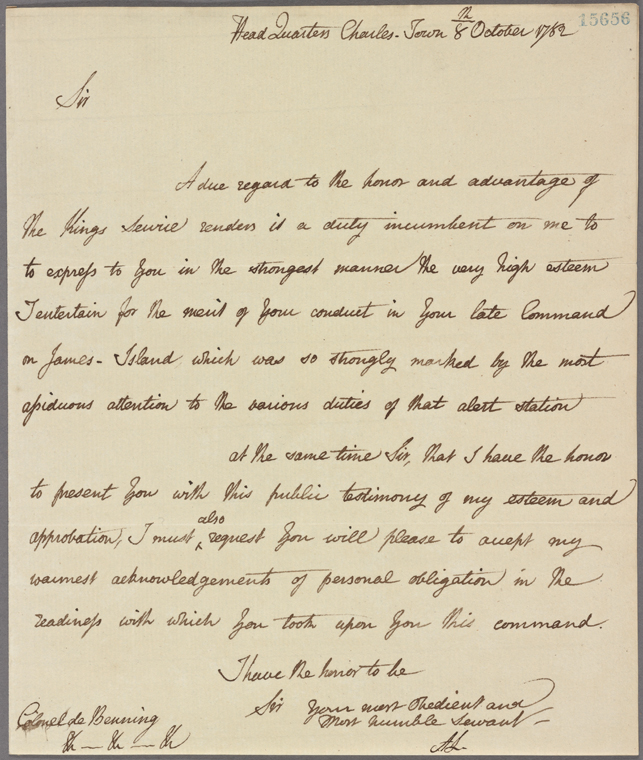 15656
Head Quarters Charles-Town 8th October 1782
Sir
A due regard to the honor and advantage of
the Kings Service renders it a duty incumbent on me to
to express to You in the strongest manner the very high esteem
I entertain for the merit of Your conduct in Your late Command
on James-Island which was so strongly marked by the most
assiduous attention to the various duties of that alert station
at the same time Sir, that I have the honor
to present You with this public testimony of my esteem and
approbation, I must also request You will please to accept my
warmest acknowledgements of personal obligation in the
readiness with which You took upon You this command.
I have the honor to be
Sir Your most Obedient and
Most humble Servant
Colonel de Benning
&c — &c — &c
AL